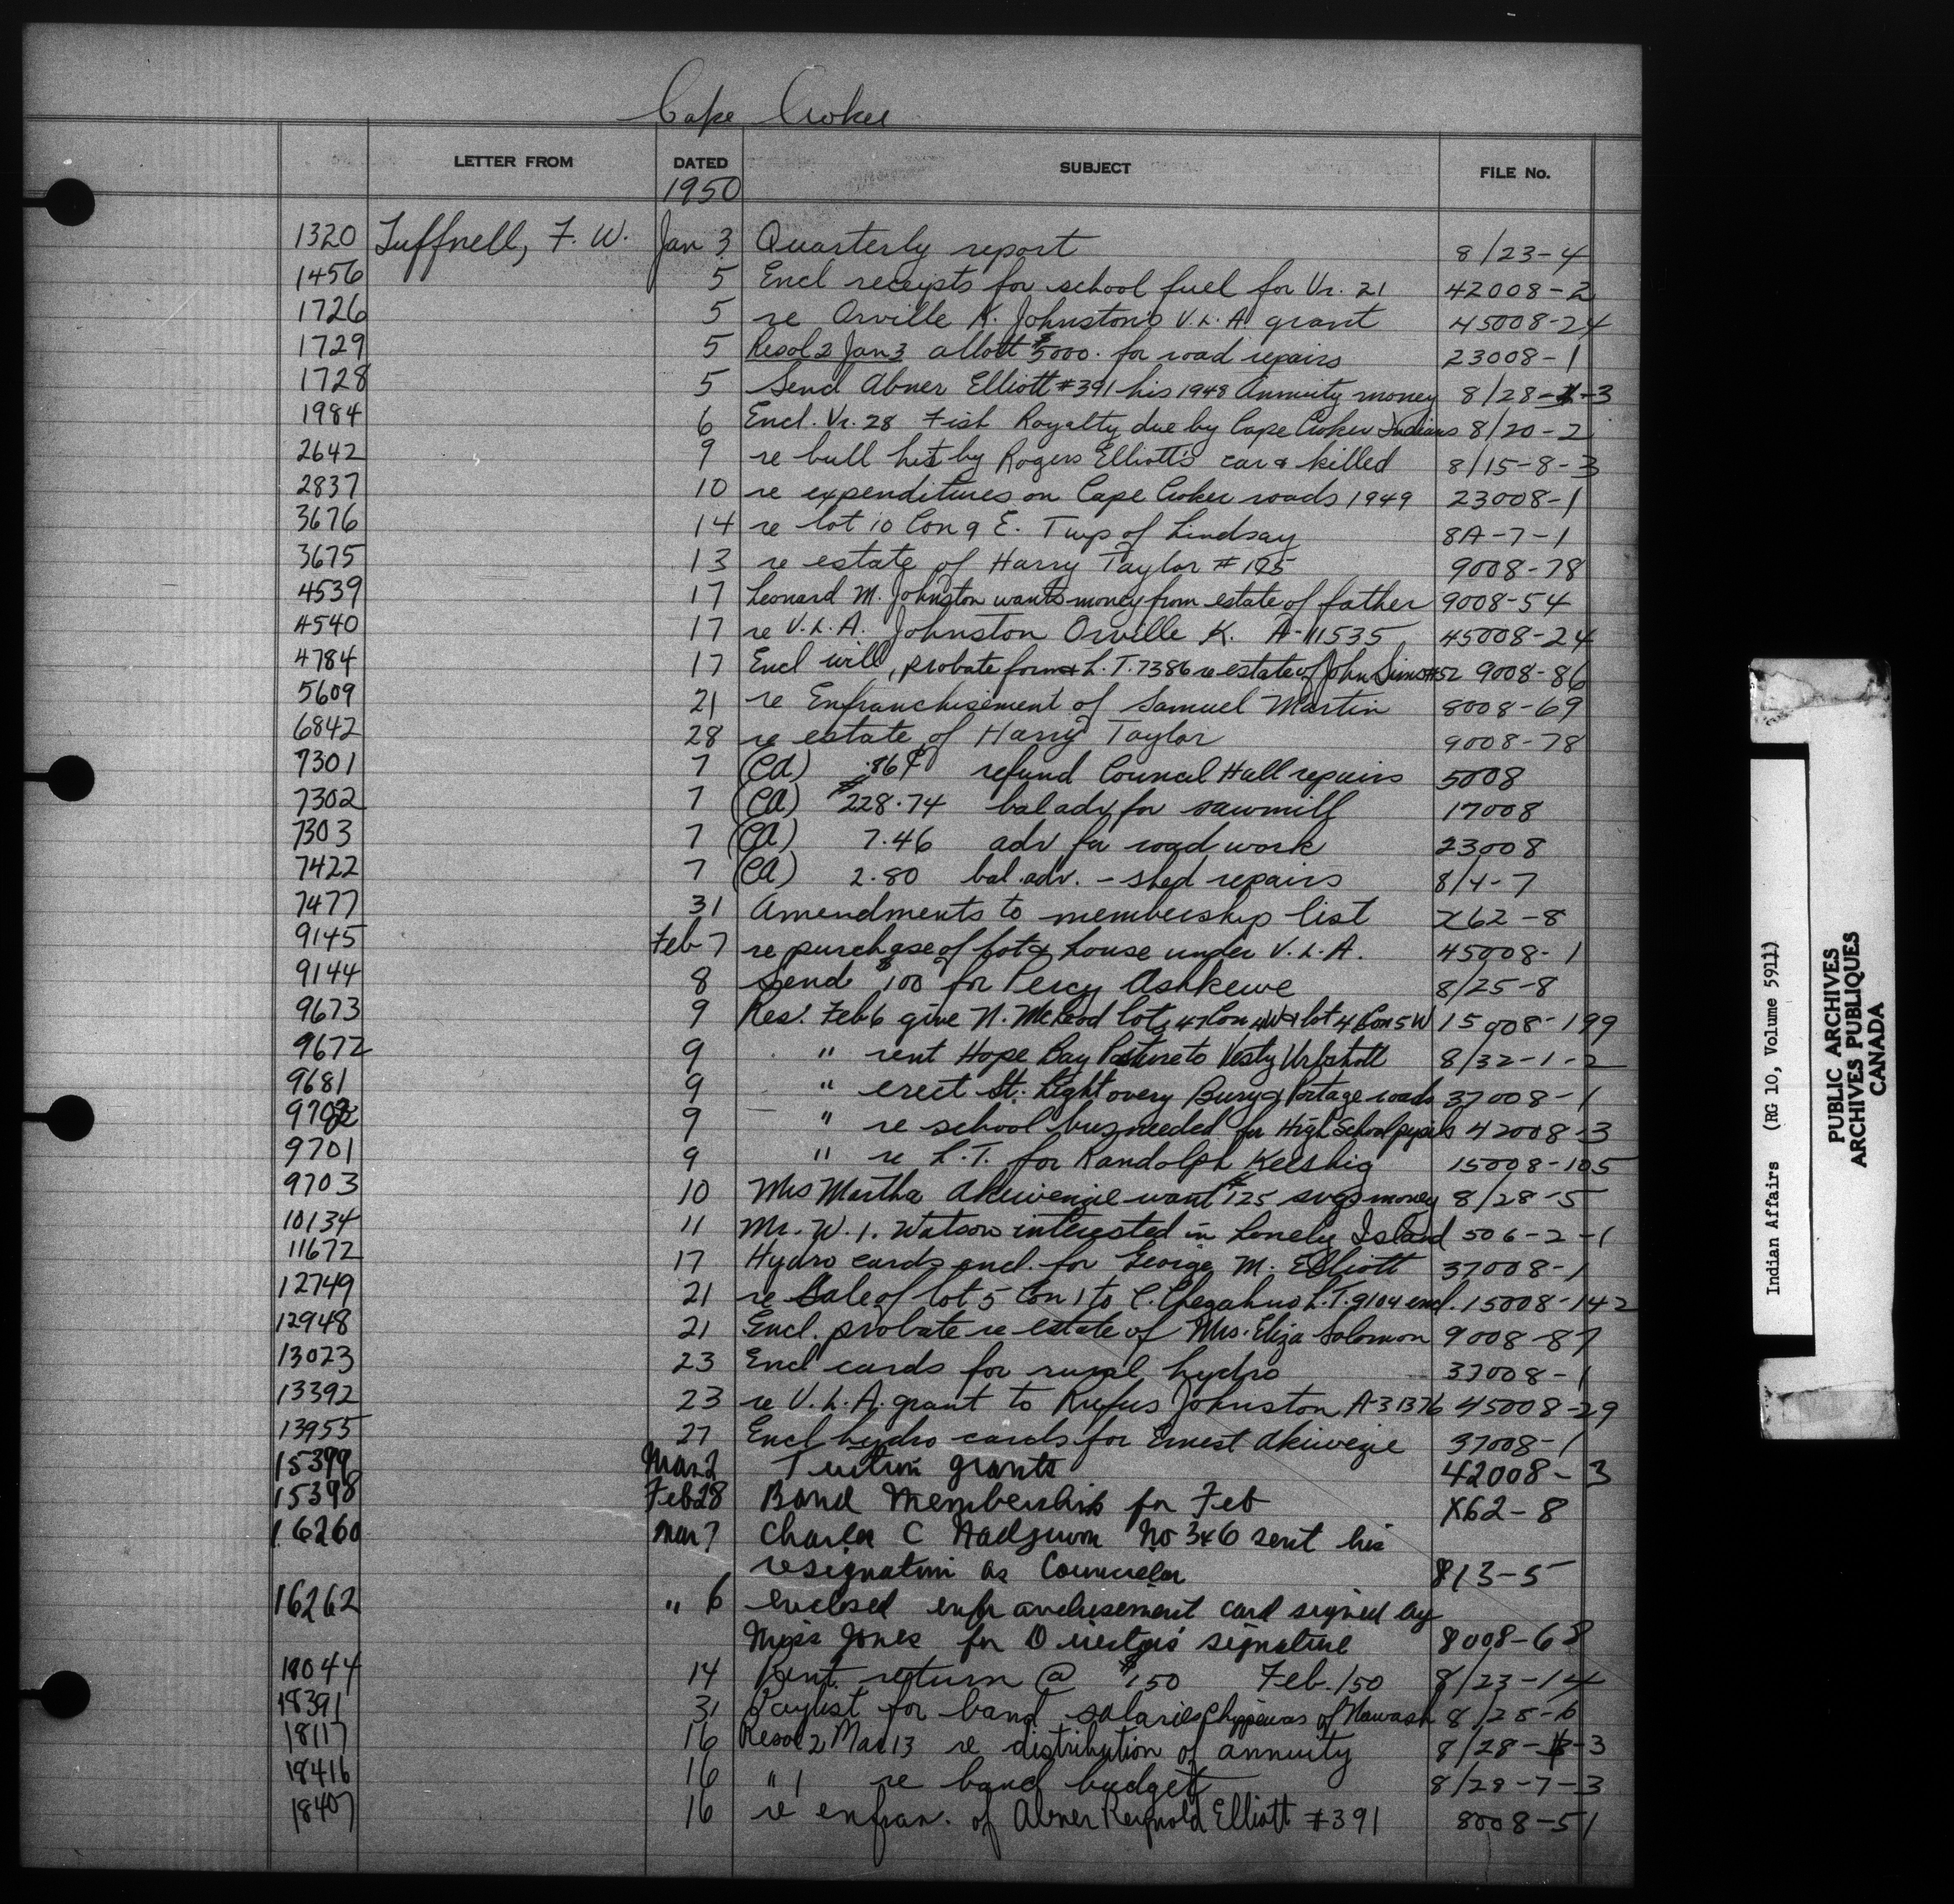 Cape Croker
LETTER FROM DATED SUBJECT FILE No.
1950
1320 Tuffnell, F. W. Jan 3 Quarterly report 8/23-4
1456 5 Encl receipts for school fuel for Vr. 21 42008-2
1726 5 re Orville K. Johnston's V.L.A. grant 45008-24
1729 5 Resol 2 Jan 3 allott $5000. for road repairs 23008-1
1728 5 Send Abner Elliott #391 his 1948 Annuity money 8/28-3
1984 6 Encl. Vr. 28 Fish Royalty due by Cape Croker Indians 8/20-2
2642 9 re bull hit by Rogers Elliott's car & killed 8/15-8-3
2837 10 re expenditures on Cape Croker roads 1949 23008-1
3676 14 re lot 10 Con 9 E. Twp of Lindsay 8A-7-1
3675 13 re estate of Harry Taylor #195 9008-78
4539 17 Leonard M. Johnston wants money from estate of father 9008-54
4540 17 re V.L.A. Johnston Orville K. A-11535 45008-24
4784 17 Encl will, probate form & L.T. 7386 re estate of John Simo #52 9008-86
5609 21 re Enfranchisement of Samuel Martin 8008-69
6842 28 re estate of Harry Taylor 9008-78
7301 7 (CA) .86¢ refund Council Hall repairs 5008
7302 7 (CA) $228.74 bal adv for sawmill 17008
7303 7 (CA) 7.46 adv for road work 23008
7422 7 (CA) 2.80 bal. adv. - shed repairs 8/4-7
7477 31 Amendments to membership list X62-8
9145 Feb 7 re purchase of lot & house under V.L.A. 45008-1
9144 8 Send $100 for Percy Ashkewe 8/25-8
9673 9 Res. Feb 6 give N. McLeod lots 47 Con 4W & lot 4 Con 5W 15008-199
9672 9 " rent Hope Bay Pasture to Vesty 8/32-1-2
9681 9 " erect St. Light Bury & Portage roads 37008-1
9702 9 " re school bus needed for High School pupils 42008-3
9701 9 " re L.T. for Randolph Keeshig 15008-105
9703 10 Mrs Martha Akiwenzie want $125 svgs money 8/28-5
10134 11 Mr. W. I. Watson interested in Lonely Island 506-2-1
11672 17 Hydro cards encl. for George M. Elliott 37008-1
12749 21 re Sale of lot 5 Con 1 to C. Chegahno L.T. 9104 encl. 15008-142
12948 21 Encl. probate re estate of Mrs. Eliza Solomon 9008-87
13023 23 Encl cards for rural hydro 37008-1
13392 23 re V.L.A. grant to Rufus Johnston A-31376 45008-29
13955 27 Encl hydro cards for Ernest Akiwenzie 37008-1
15399 Mar 2 Tuition grants 42008-3
15398 Feb 28 Band Membership for Feb X62-8
16260 Mar 7 Charles C Nadjiwon No 346 sent his
resignation as Councelor 813-5
16262 " 6 enclosed enfranchisement card signed by
Miss Jones for Director's signature 8008-68
18044 14 Rent return @ $150 Feb./50 8/23-14
18391 31 Paylist for band salaries Chippewas of Nawash 8/28-6
18117 16 Resol 2 Mar 13 re distribution of annuity 8/28-3
18416 16 " 1 re band budget 8/29-7-3
18407 16 re enfran. of Abner Reynold Elliott #391 8008-51
Indian Affairs (RG 10, Volume 5911)
PUBLIC ARCHIVES
ARCHIVES PUBLIQUES
CANADA